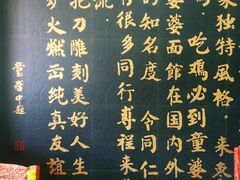 家独特風格。来東
吃 必到童
婆婆面館在国内外
的知名度 令同仁
有很多同行尊 来
流
把刀雕刻美好人生
火燃出純真友誼